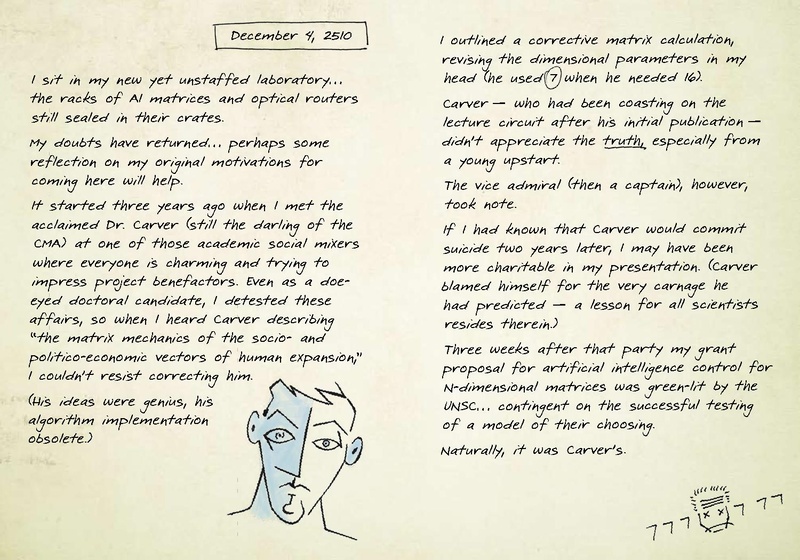 December 4, 2510
I sit in my new yet unstaffed laboratory...
the racks of AI matrices and optical routers
still sealed in their crates.
My doubts have returned... perhaps some
reflection on my original motivations for
coming here will help.
It started three years ago when I met the
acclaimed Dr. Carver (still the darling of the
CMA) at one of those academic social mixers
where everyone is charming and trying to
impress project benefactors. Even as a doe-
eyed doctoral candidate, I detested these
affairs, so when I heard Carver describing
"the matrix mechanics of the socio- and
politico-economic vectors of human expansion,"
I couldn't resist correcting him.
(His ideas were genius, his
algorithm implementation
obsolete.)
I outlined a corrective matrix calculation,
revising the dimensional parameters in my
head (he used 7 when he needed 16).
Carver — who had been coasting on the
lecture circuit after his initial publication —
didn't appreciate the truth, especially from
a young upstart.
The vice admiral (then a captain), however,
took note.
If I had known that Carver would commit
suicide two years later, I may have been
more charitable in my presentation. (Carver
blamed himself for the very carnage he
had predicted — a lesson for all scientists
resides therein.)
Three weeks after that party my grant
proposal for artificial intelligence control for
N-dimensional matrices was green-lit by the
UNSC... contingent on the successful testing
of a model of their choosing.
Naturally, it was Carver's.
7 7 7 7 7 7